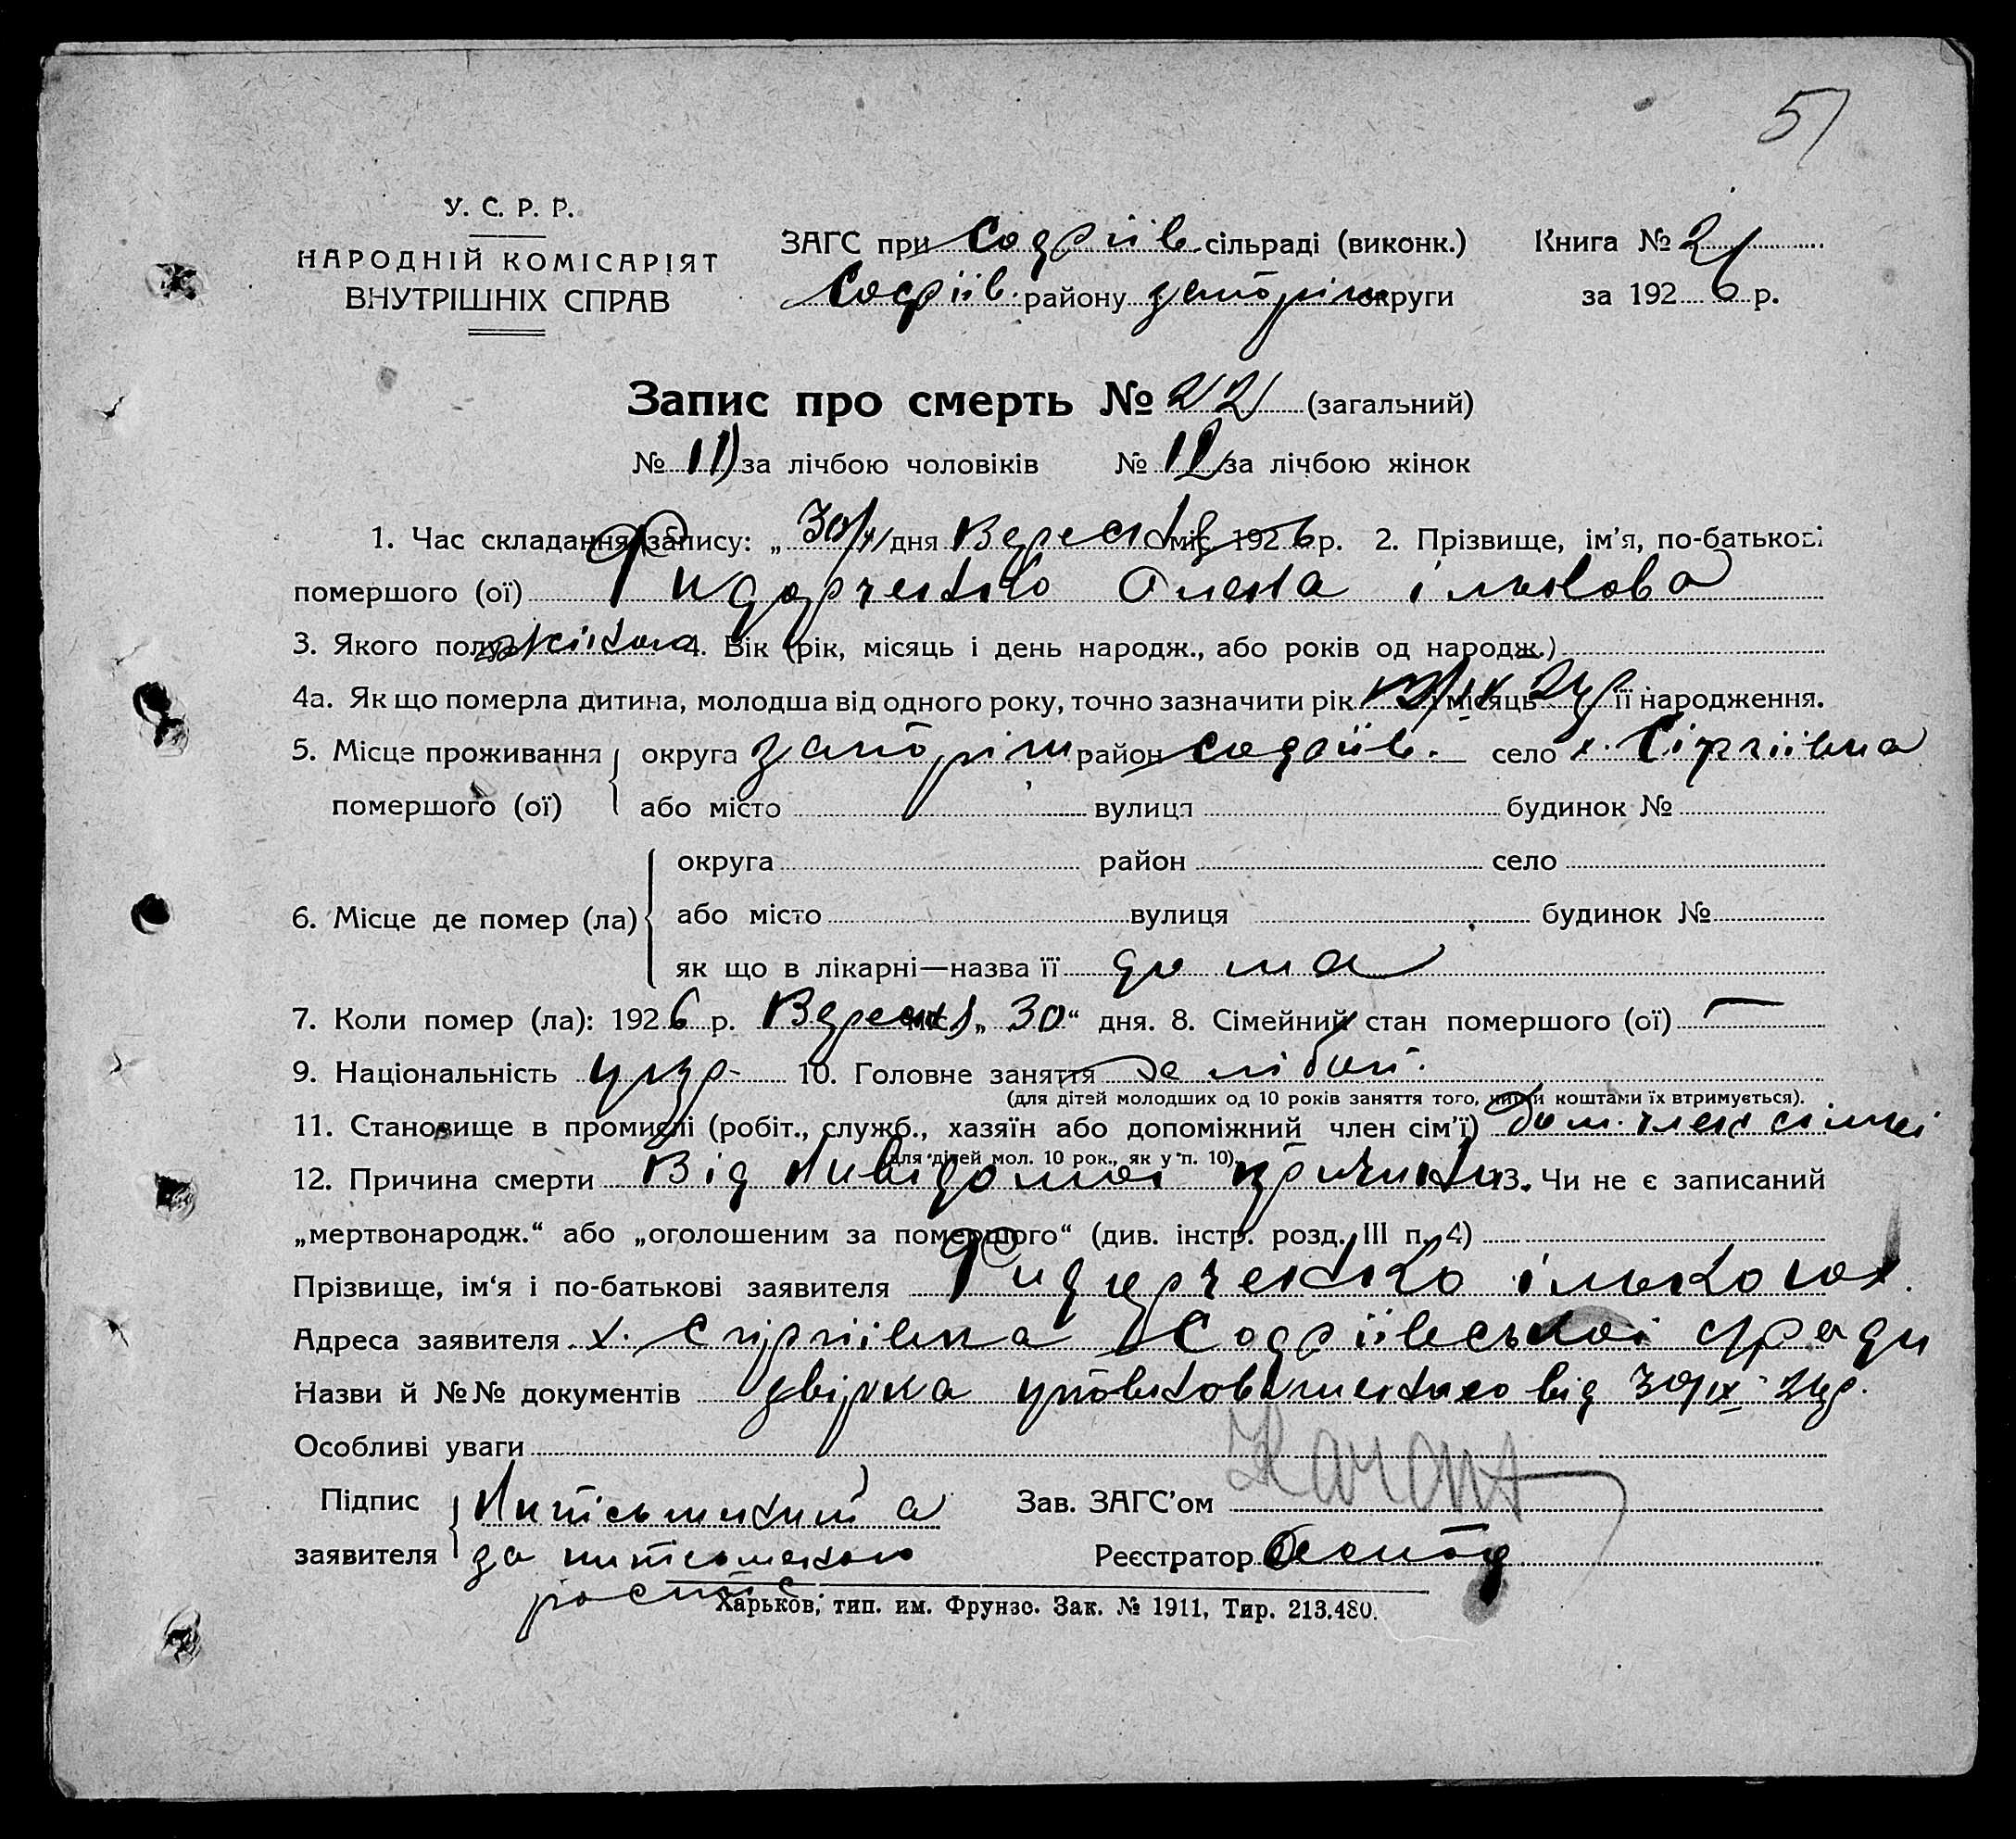 51
У. С. Р. Р.
НАРОДНІЙ КОМІСАРІЯТ
ВНУТРІШНІХ СПРАВ
ЗАГС при Софіїв. сільраді (виконк.) Книга № 2
Софіїв. району запоріж округи за 1926 р.
Запис про смерть № 22 (загальний)
№ 11 за лічбою чоловіків № 11 за лічбою жінок
1. Час складання запису: „30/ дня Вересня міс. 1926 р. 2. Прізвище, ім’я, по-батькові
помершого (ої) Фидорченко Олена ількова
3. Якого полу жіноча 4. Вік (рік, місяць і день народж., або років од народж.)
4а. Як що померла дитина, молодша від одного року, точно зазначити рік місяць її народження.
5. Місце проживання округа запоріж район Софіїв. село х. Сіргіївка
помершого (ої) або місто вулиця будинок №
округа район село
6. Місце де помер (ла) або місто вулиця будинок №
як що в лікарні—назва її дома
7. Коли помер (ла): 1926 р. Вересня міс. „30“ дня. 8. Сімейний стан помершого (ої) —
9. Національність укр. 10. Головне заняття хлібоп.
(для дітей молодших од 10 років заняття того, чиїми коштами їх втримується).
11. Становище в промислі (робіт., служб., хазяїн або допоміжний член сім’ї) Доп. член сімьі
(для дітей мол. 10 рок., як у п. 10).
12. Причина смерти Від нивідомої причини 13. Чи не є записаний
„мертвонародж.“ або „оголошеним за помершого“ (див. інстр. розд. III п. 4)
Прізвище, ім‘я і по-батькові заявителя Фидорченко ілько
Адреса заявителя х. Сіргіївка Софіївської с/ради
Назви й №№ документів від 30/ix 26р.
Особливі уваги
Підпис Нипісьменний а Зав. ЗАГС’ом
заявителя за нипісьменого Реєстратор
роспис
Харьков, тип. им. Фрунзе. Зак. № 1911, Тир. 213.480.